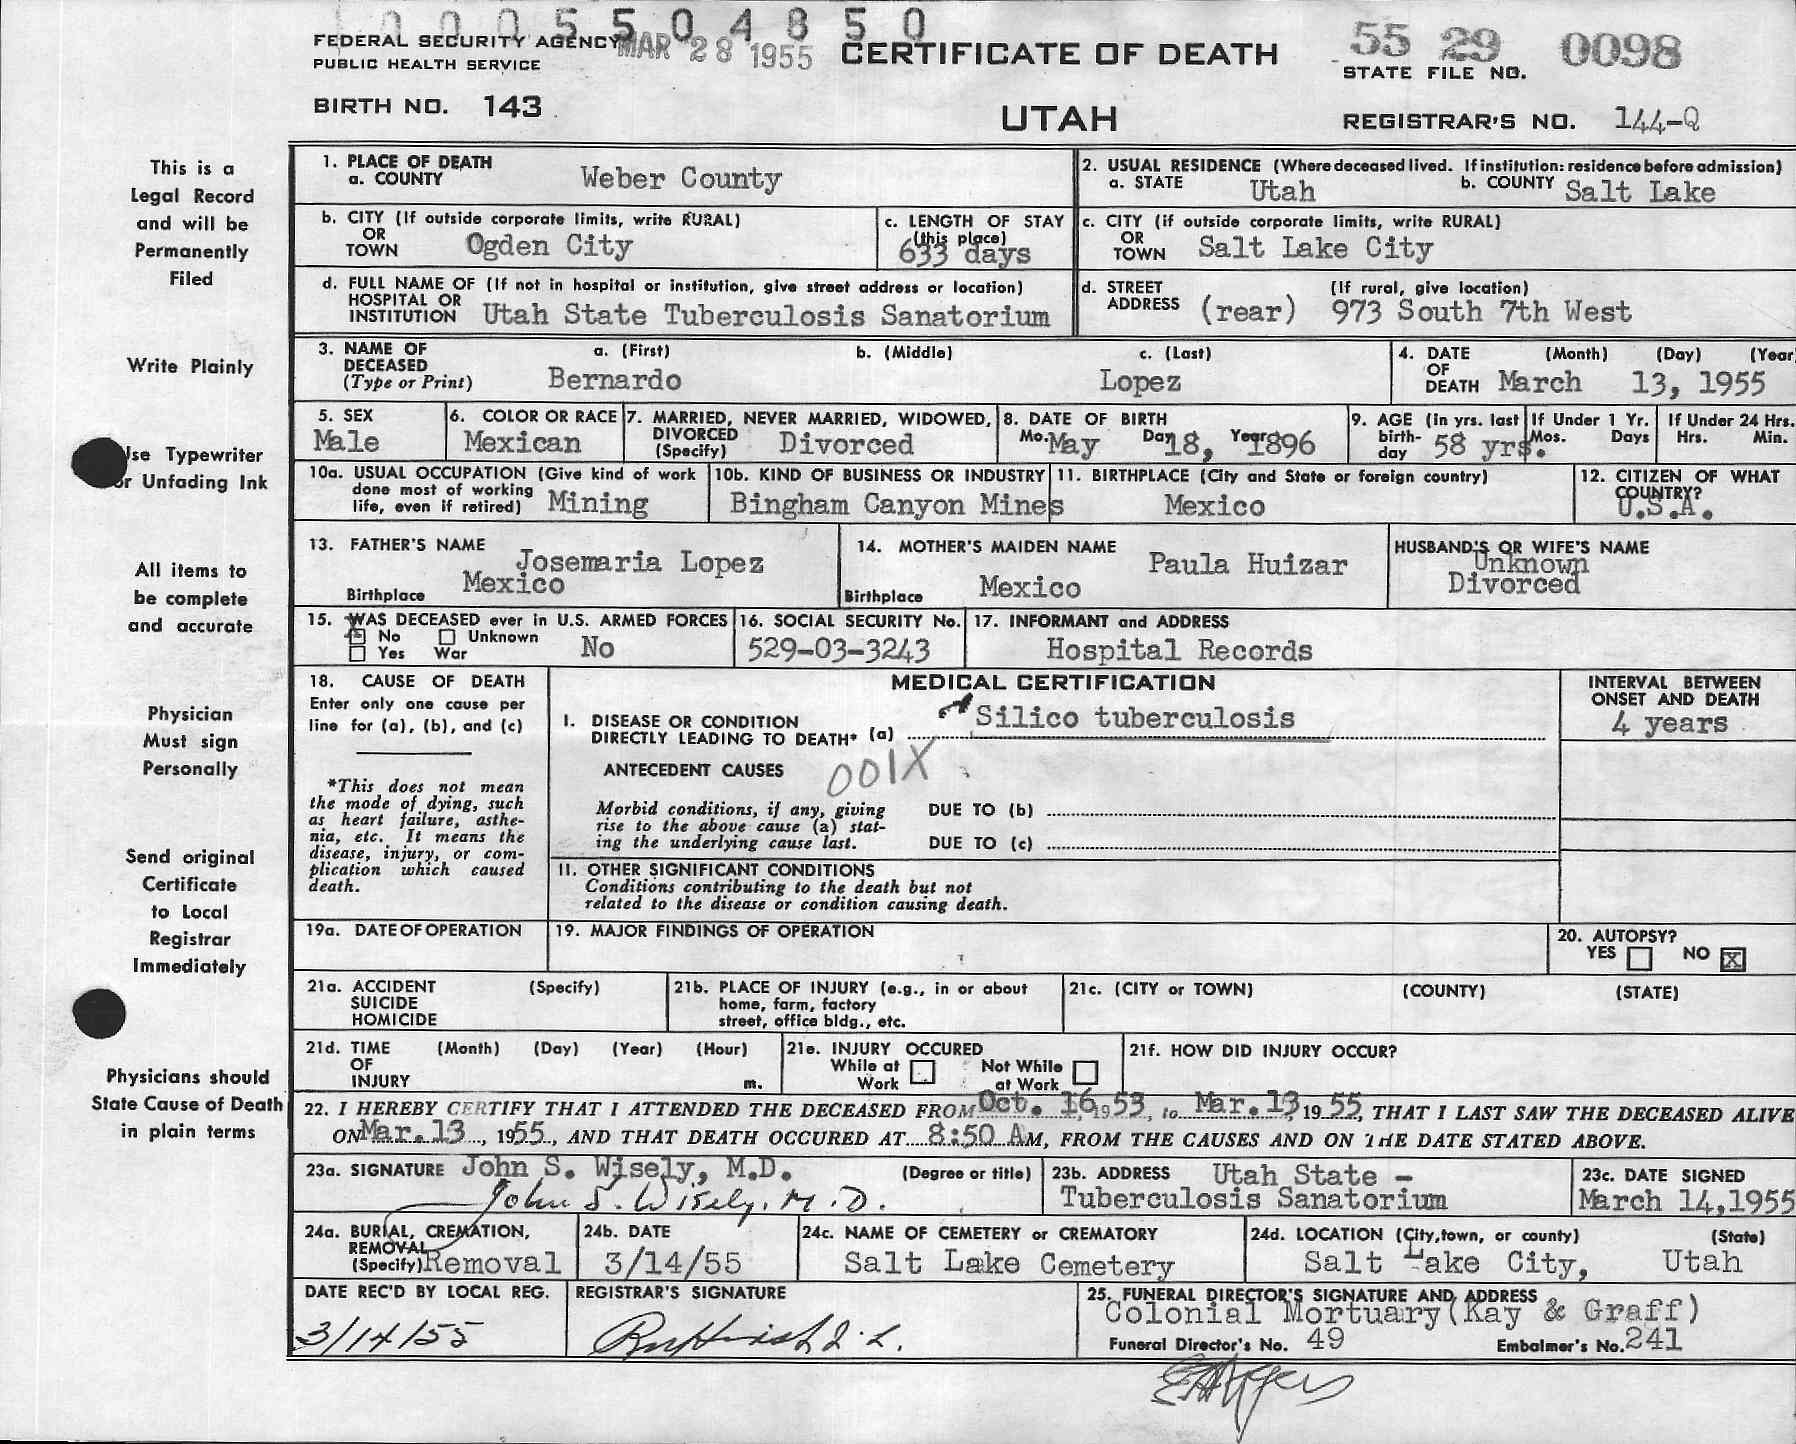 0 0 0 5 5 0 4 8 5 0
FEDERAL SECURITY AGENCY MAR 28 1955 CERTIFICATE OF DEATH 55 29 0098
PUBLIC HEALTH SERVICE STATE FILE NO.
BIRTH NO. 143 UTAH REGISTRAR'S NO. 144-Q
This is a
Legal Record
and will be
Permanently
Filed
Write Plainly
Use Typewriter
or Unfading Ink
All items to
be complete
and accurate
Physician
Must sign
Personally
Send original
Certificate
to Local
Registrar
Immediately
Physicians should
State Cause of Death
in plain terms
1. PLACE OF DEATH
a. COUNTY Weber County
2. USUAL RESIDENCE (Where deceased lived. If institution: residence before admission)
a. STATE Utah b. COUNTY Salt Lake
b. CITY (If outside corporate limits, write RURAL)
OR
TOWN Ogden City
c. LENGTH OF STAY
(this place)
633 days
c. CITY (if outside corporate limits, write RURAL)
OR
TOWN Salt Lake City
d. FULL NAME OF (If not in hospital or institution, give street address or location)
HOSPITAL OR
INSTITUTION Utah State Tuberculosis Sanatorium
d. STREET (If rural, give location)
ADDRESS (rear) 973 South 7th West
3. NAME OF a. (First) b. (Middle) c. (Last)
DECEASED
(Type or Print) Bernardo Lopez
4. DATE (Month) (Day) (Year
OF
DEATH March 13, 1955
5. SEX
Male
6. COLOR OR RACE
Mexican
7. MARRIED, NEVER MARRIED, WIDOWED,
DIVORCED
(Specify) Divorced
8. DATE OF BIRTH
Mo. May Day 18, Year 1896
9. AGE (in yrs. last
birth-
day 58 yrs.
If Under 1 Yr.
Mos. Days
If Under 24 Hrs.
Hrs. Min.
10a. USUAL OCCUPATION (Give kind of work
done most of working
life, even if retired) Mining
10b. KIND OF BUSINESS OR INDUSTRY
Bingham Canyon Mines
11. BIRTHPLACE (City and State or foreign country)
Mexico
12. CITIZEN OF WHAT
COUNTRY?
U.S.A.
13. FATHER'S NAME
Josemaria Lopez
Birthplace Mexico
14. MOTHER'S MAIDEN NAME Paula Huizar
Birthplace Mexico
HUSBAND'S OR WIFE'S NAME
Unknown
Divorced
15. WAS DECEASED ever in U.S. ARMED FORCES
No Unknown
Yes War No
16. SOCIAL SECURITY No.
529-03-3243
17. INFORMANT and ADDRESS
Hospital Records
18. CAUSE OF DEATH
Enter only one cause per
line for (a), (b), and (c)
*This does not mean
the mode of dying, such
as heart failure, asthe-
nia, etc. It means the
disease, injury, or com-
plication which caused
death.
MEDICAL CERTIFICATION
I. DISEASE OR CONDITION
DIRECTLY LEADING TO DEATH* (a) Silico tuberculosis
ANTECEDENT CAUSES 001X
Morbid conditions, if any, giving
rise to the above cause (a) stat-
ing the underlying cause last.
DUE TO (b)
DUE TO (c)
II. OTHER SIGNIFICANT CONDITIONS
Conditions contributing to the death but not
related to the disease or condition causing death.
INTERVAL BETWEEN
ONSET AND DEATH
4 years
19a. DATE OF OPERATION
19. MAJOR FINDINGS OF OPERATION
20. AUTOPSY?
YES NO X
21a. ACCIDENT (Specify)
SUICIDE
HOMICIDE
21b. PLACE OF INJURY (e.g., in or about
home, farm, factory
street, office bldg., etc.
21c. (CITY or TOWN) (COUNTY) (STATE)
21d. TIME (Month) (Day) (Year) (Hour)
OF
INJURY m.
21e. INJURY OCCURED
While at Not While
Work at Work
21f. HOW DID INJURY OCCUR?
22. I HEREBY CERTIFY THAT I ATTENDED THE DECEASED FROM Oct. 16, 1953, to Mar. 13, 1955, THAT I LAST SAW THE DECEASED ALIVE
ON Mar. 13, 1955, AND THAT DEATH OCCURED AT 8:50 AM, FROM THE CAUSES AND ON THE DATE STATED ABOVE.
23a. SIGNATURE John S. Wisely, M.D. (Degree or title)
John S. Wisely, M.D.
23b. ADDRESS Utah State -
Tuberculosis Sanatorium
23c. DATE SIGNED
March 14,1955
24a. BURIAL, CREMATION,
REMOVAL
(Specify) Removal
24b. DATE
3/14/55
24c. NAME OF CEMETERY or CREMATORY
Salt Lake Cemetery
24d. LOCATION (City, town, or county) (State)
Salt Lake City, Utah
DATE REC'D BY LOCAL REG.
3/14/55
REGISTRAR'S SIGNATURE
25. FUNERAL DIRECTOR'S SIGNATURE AND ADDRESS
Colonial Mortuary (Kay & Graff)
Funeral Director's No. 49 Embalmer's No. 241